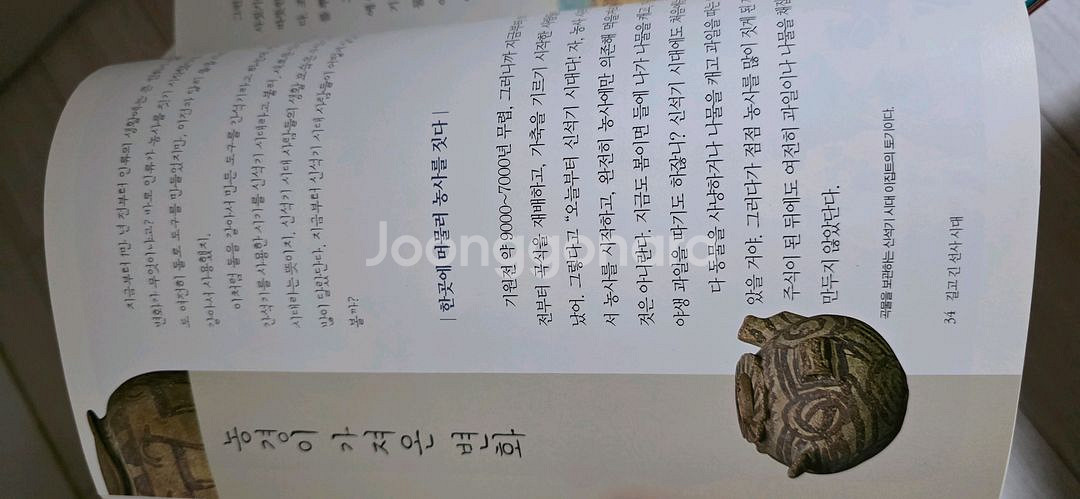 농경이 가져온 변화
지금부터 1만 년 전부터 인류의 생활에는 큰
변화가 무엇이냐고? 바로 인류가 농사를 짓기
로 여전히 돌로 도구를 만들었지만, 이전과 달리 돌을
갈아서 사용했지.
이처럼 돌을 갈아서 만든 도구를 간석기라고
간석기를 사용한 시기를 신석기 시대라고 불러.
시대라는 뜻이지. 신석기 시대 사람들의 생활 모습은
많이 달랐단다. 지금부터 신석기 시대 사람들이
볼까?
| 한곳에 머물러 농사를 짓다 |
기원전 약 9000~7000년 무렵, 그러니까 지금부터
전부터 곡식을 재배하고, 가축을 기르기 시작한 사람
났어. 그렇다고 “오늘부터 신석기 시대다! 자, 농사
서 농사를 시작하고, 완전히 농사에만 의존해 먹을
것은 아니란다. 지금도 봄이면 들에 나가 나물을 캐고
야생 과일을 따기도 하잖니? 신석기 시대에도 처음
다 동물을 사냥하거나 나물을 캐고 과일을 따는
았을 거야. 그러다가 점점 농사를 많이 짓게 된
주식이 된 뒤에도 여전히 과일이나 나물을
만두지 않았단다.
곡물을 보관하는 신석기 시대 이집트의 토기이다.
34 길고 긴 선사 시대
Joonggonara